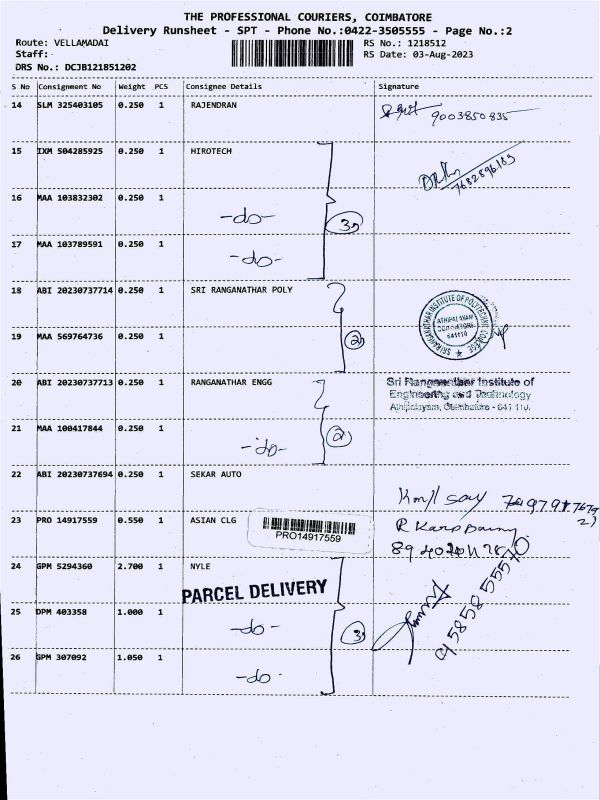 THE PROFESSIONAL COURIERS, COIMBATORE
Delivery Runsheet - SPT - Phone No.:0422-3505555 - Page No.:2
Route: VELLAMADAI RS No.: 1218512
Staff:- RS Date: 03-Aug-2023
DRS No.: DCJB121851202
S No Consignment No Weight PCS Consignee Details Signature
14 SLM 325403105 0.250 1 RAJENDRAN 9003850835
15 IXM 504285925 0.250 1 HIROTECH 7682896185
16 MAA 103832302 0.250 1 -do- 3
17 MAA 103789591 0.250 1 -do-
18 ABI 20230737714 0.250 1 SRI RANGANATHAR POLY
SRI RANGANATHAR INSTITUTE OF POLYTECHNIC COLLEGE
ATHIPALAYAM
COIMBATORE
641110
19 MAA 569764736 0.250 1 2
20 ABI 20230737713 0.250 1 RANGANATHAR ENGG Sri Ranganathar Institute of
Engineering and Technology
Athipalayam, Coimbatore - 641 110.
21 MAA 100417844 0.250 1 -do- 2
22 ABI 20230737694 0.250 1 SEKAR AUTO
23 PRO 14917559 0.550 1 ASIAN CLG
PRO14917559
24 GPM 5294360 2.700 1 NYLE
PARCEL DELIVERY
25 DPM 403358 1.000 1 -do- 3
26 GPM 307092 1.050 1 -do-